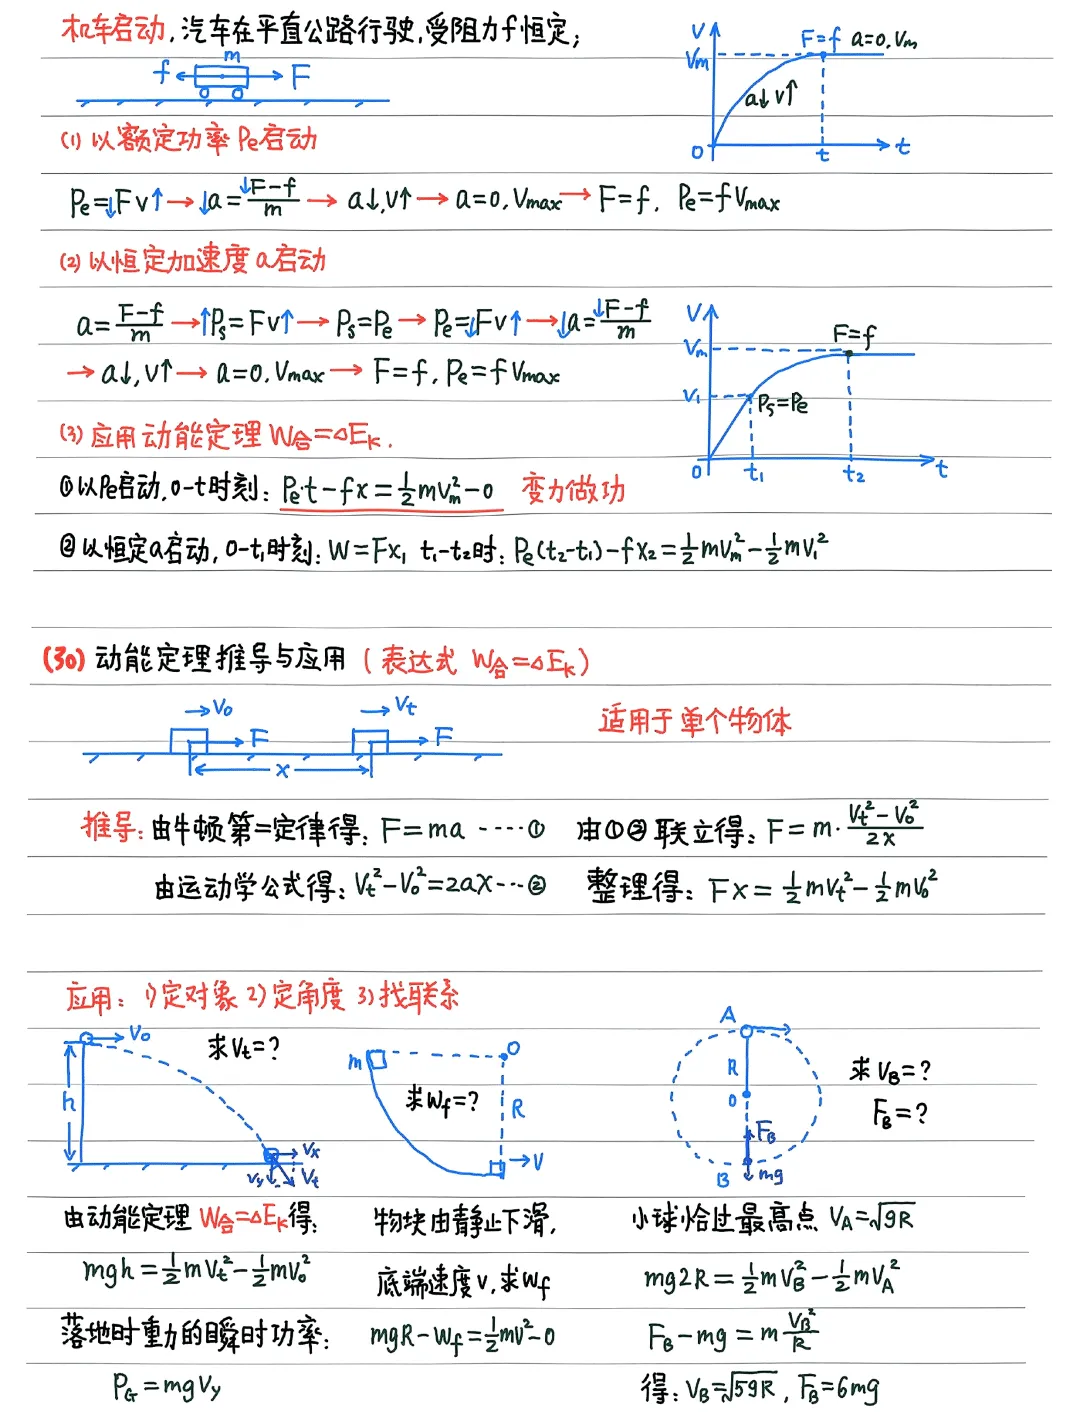 机车启动,汽车在平直公路行驶,受阻力f恒定;
f m F
V Vm F=f a=0,Vm a↓ v↑ 0 t t
(1) 以额定功率Pe启动
Pe=↓Fv↑→↓a=↓F-f/m→a↓,v↑→a=0,Vmax→F=f, Pe=fVmax
(2) 以恒定加速度a启动
a=F-f/m→↑Ps=Fv↑→Ps=Pe→Pe=↓Fv↑→↓a=↓F-f/m
→a↓,v↑→a=0,Vmax→F=f,Pe=fVmax
V Vm F=f V₁ Ps=Pe 0 t₁ t₂ t
(3) 应用动能定理W合=△Ek.
①以Pe启动,0-t时刻: Pet-fx=½mVm²-0 变力做功
②以恒定a启动,0-t₁时刻: W=Fx₁ t₁-t₂时: Pe(t₂-t₁)-fx₂=½mVm²-½mV₁²
(30) 动能定理推导与应用 (表达式 W合=△Ek)
V₀ Vt F F x
适用于单个物体
推导: 由牛顿第二定律得: F=ma ----① 由①②联立得: F=m·Vt²-V₀²/2x
由运动学公式得: Vt²-V₀²=2ax---② 整理得: Fx=½mVt²-½mV₀²
应用: 1)定对象 2)定角度 3)找联系
V₀ 求Vt=? h Vx Vy Vt
m O 求Wf=? R V
A R O FB B mg 求VB=? FB=?
由动能定理W合=△Ek得:
mgh=½mVt²-½mV₀²
落地时重力的瞬时功率:
PG=mgVy
物块由静止下滑,
底端速度v,求Wf
mgR-Wf=½mv²-0
小球恰过最高点 VA=√gR
mg2R=½mVB²-½mVA²
FB-mg=mVB²/R
得: VB=√5gR, FB=6mg